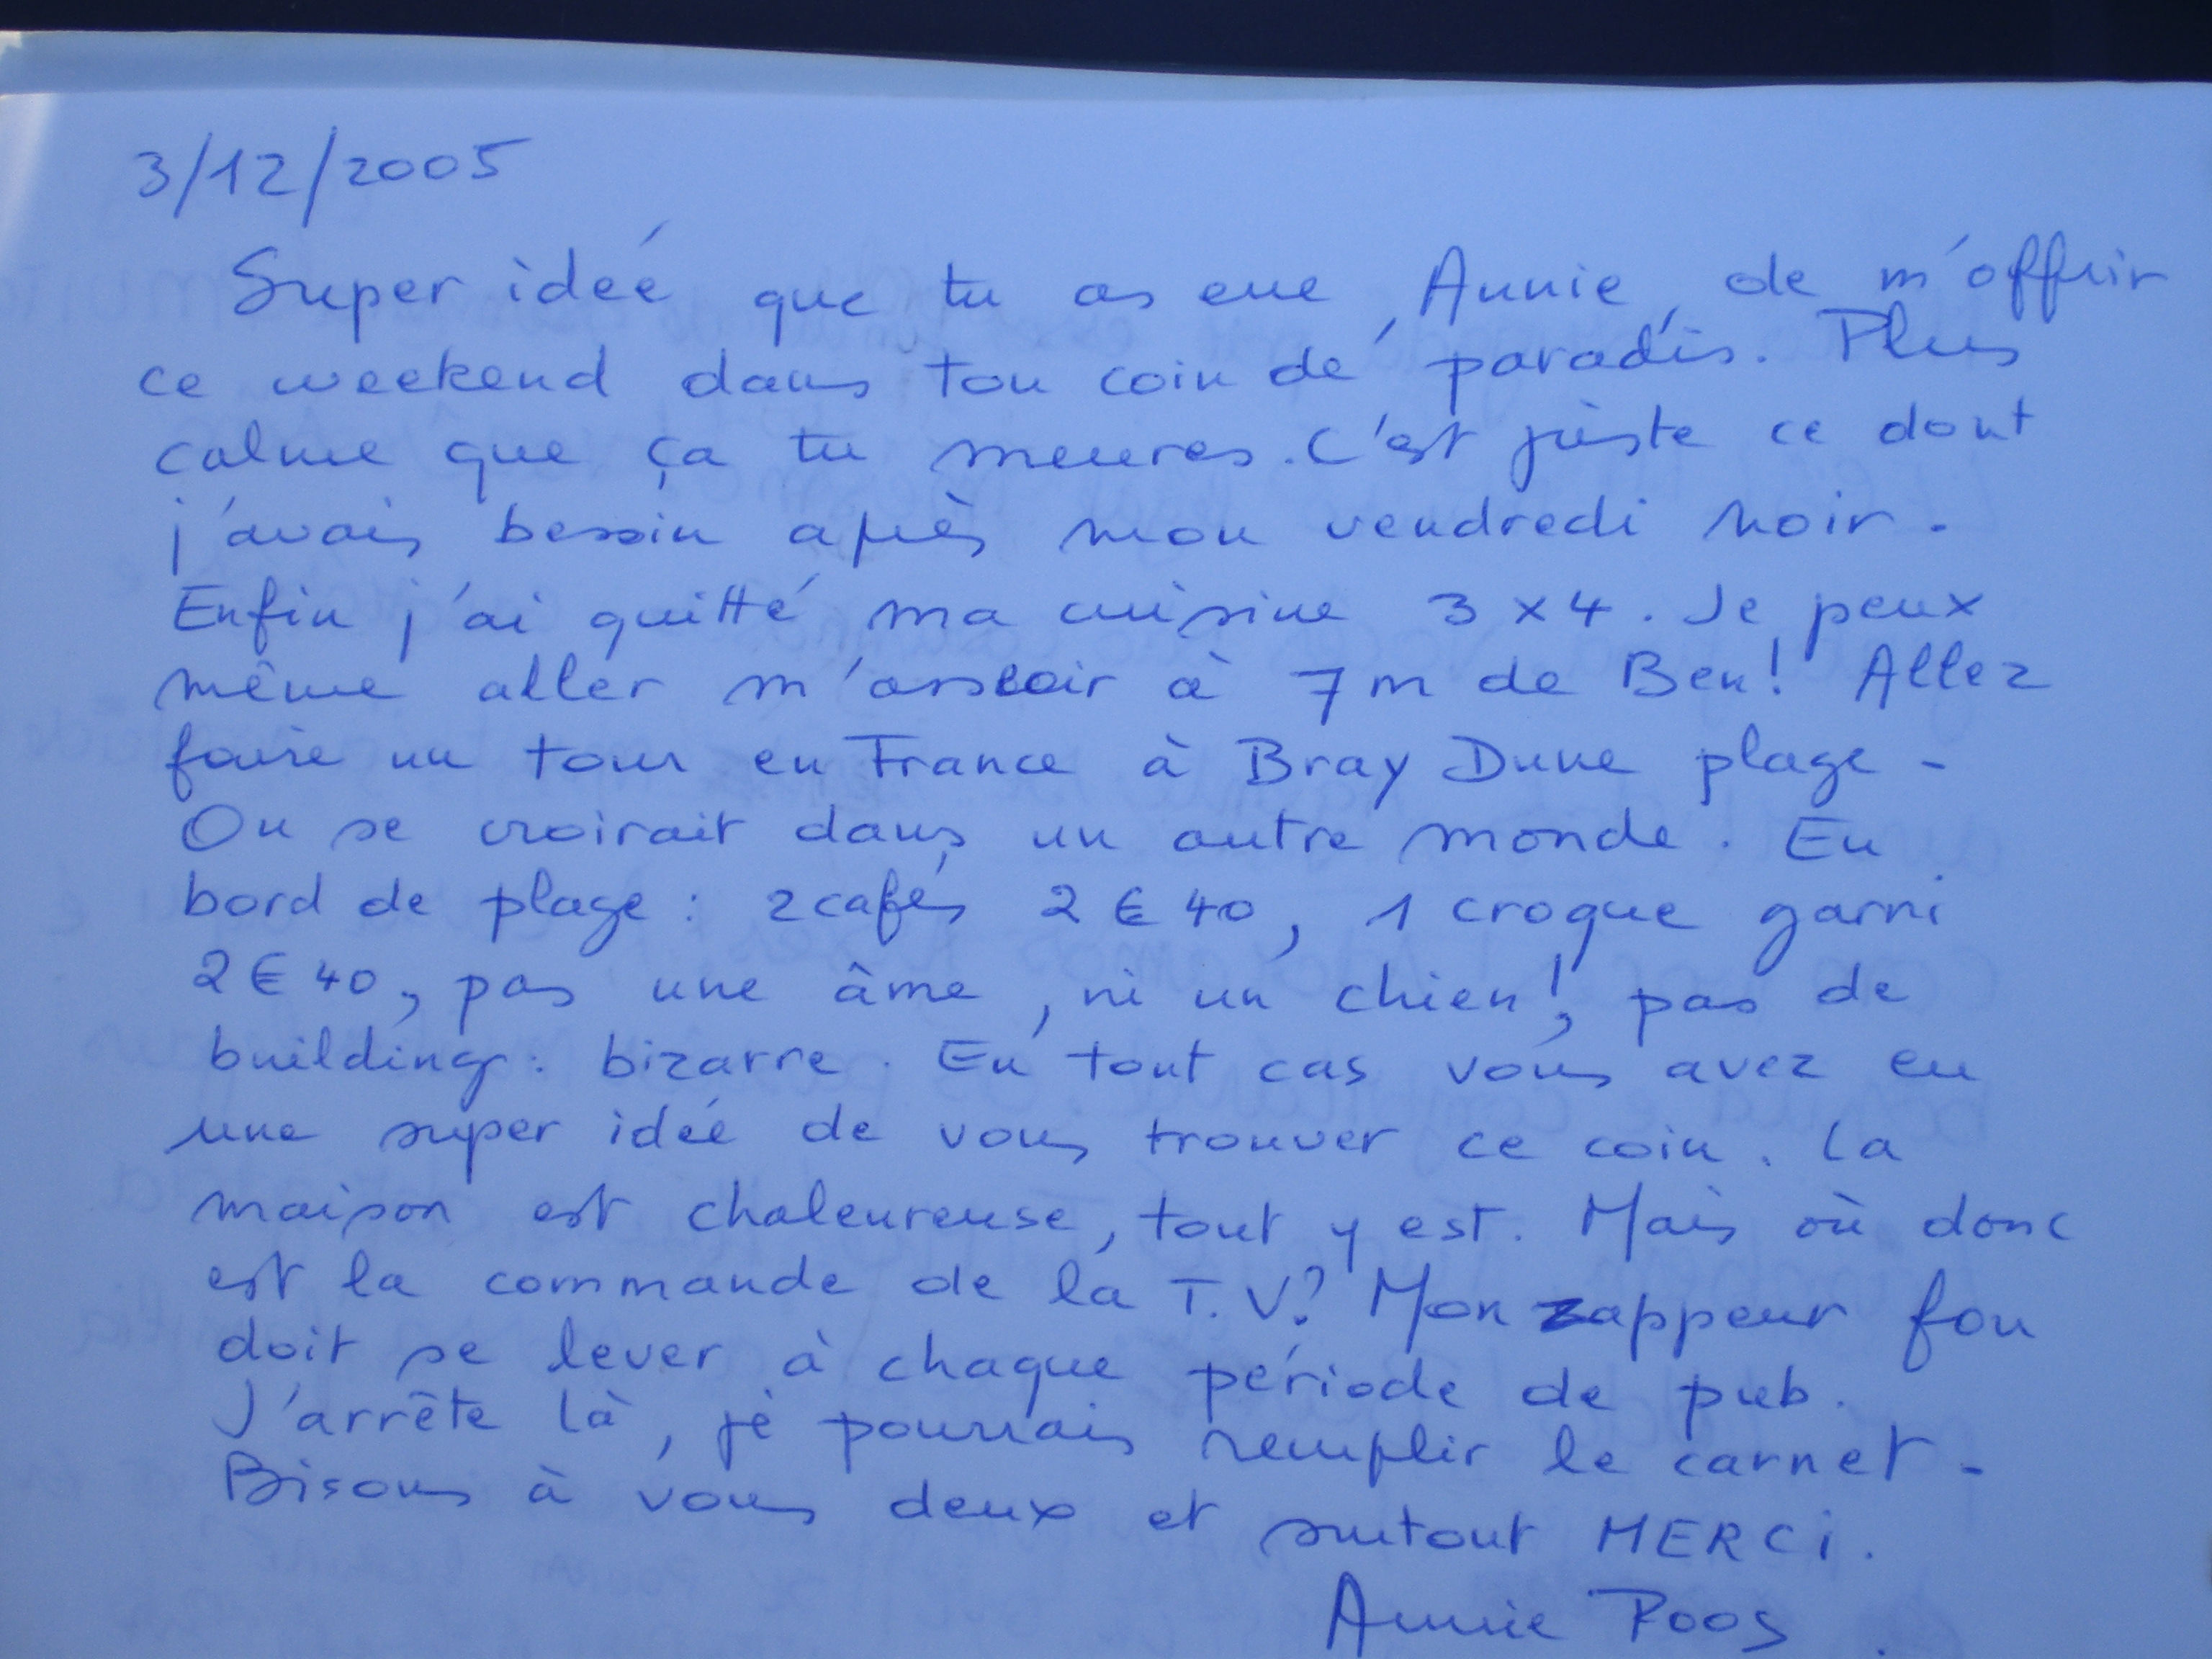 3/12/2005
Super idée que tu as eue, Annie, de m'offrir
ce weekend dans ton coin de paradis. Plus
calme que ça tu meures. C'est juste ce dont
j'avais besoin après mon vendredi noir.
Enfin j'ai quitté ma cuisine 3 x 4. Je peux
même aller m'asseoir à 7m de Ben! Allez
faire un tour en France à Bray Dune plage -
On se croirait dans un autre monde. En
bord de plage : 2 cafés 2 € 40, 1 croque garni
2 € 40, pas une âme, ni un chien!, pas de
building : bizarre. En tout cas vous avez eu
une super idée de vous trouver ce coin. La
maison est chaleureuse, tout y est. Mais où donc
est la commande de la T.V.? Mon zappeur fou
doit se lever à chaque période de pub.
J'arrête là, je pourrais remplir le carnet -
Bisous à vous deux et surtout MERCi.
Annie Roos